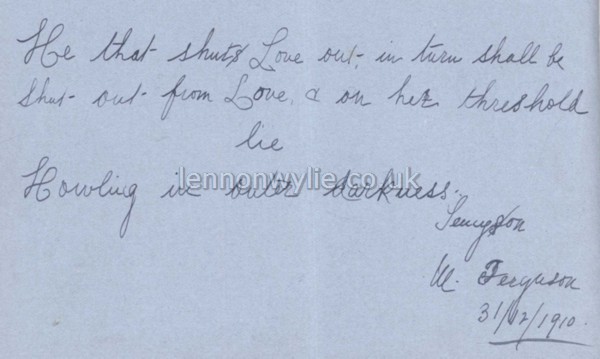 He that shuts Love out, in turn shall be
Shut out from Love, & on her threshold
lie
Howling in outer darkness.
lennonwylie.co.uk
Tennyson
M. Ferguson
31/12/1910.